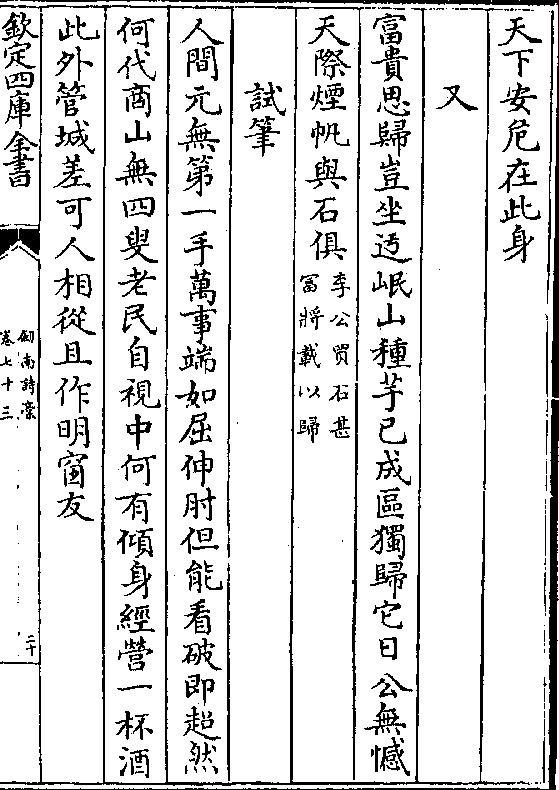 天下安危在此身
又
富貴思歸豈坐迃岷山種芋已成區獨歸它日公無憾
天際煙帆與石俱李公買石甚
富將載以歸
試筆
人間元無第一手萬事端如屈伸肘但能看破即超然
何代商山無四叟老民自視中何有傾身經營一杯酒
此外管城差可人相從且作明窗友
欽定四庫全書
劒南詩藁
卷七十三
二十